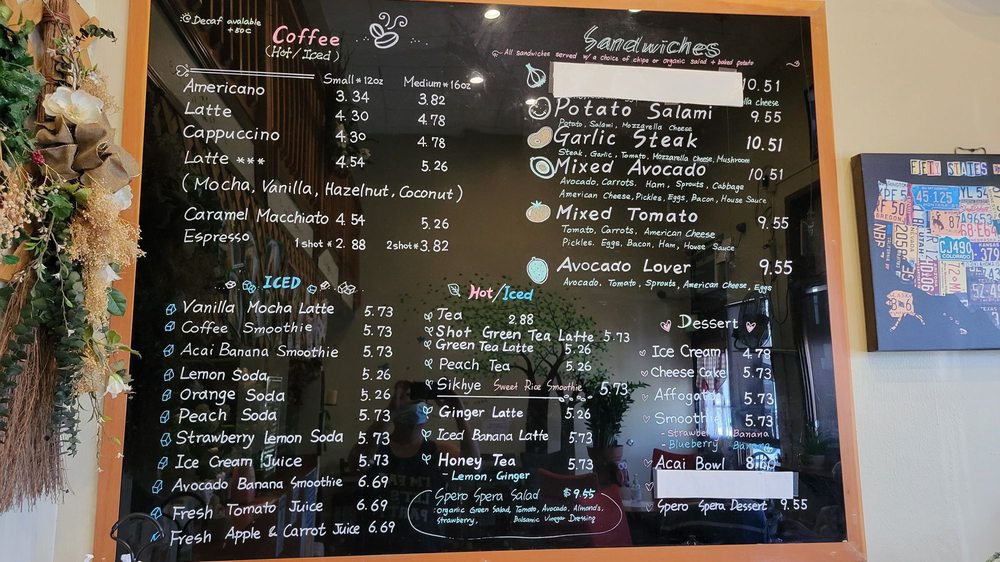 Decaf avalable
+50C
Coffee
(Hot/Iced)
Small * 12oz Medium * 16oz
Americano 3.34 3.82
Latte 4.30 4.78
Cappuccino 4.30 4.78
Latte *** 4.54 5.26
(Mocha, Vanilla, Hazelnut, Coconut)
Caramel Macchiato 4.54 5.26
Espresso 1 shot * 2.88 2 shot * 3.82
ICED
Vanilla Mocha Latte 5.73
Coffee Smoothie 5.73
Acai Banana Smoothie 5.73
Lemon Soda 5.26
Orange Soda 5.26
Peach Soda 5.73
Strawberry Lemon Soda 5.73
Ice Cream Juice 5.73
Avocado Banana Smoothie 6.69
Fresh Tomato Juice 6.69
Fresh Apple & Carrot Juice 6.69
Hot/Iced
Tea 2.88
Shot Green Tea Latte 5.73
Green Tea Latte 5.26
Peach Tea 5.26
Sikhye Sweet Rice Smoothie 5.73
Ginger Latte 5.26
Iced Banana Latte 5.73
Honey Tea 5.73
- Lemon, Ginger
Spero Spera Salad $9.55
: Organic Green Salad, Tomato, Avocado, Almonds,
Strawberry, Balsamic Vinegar Dressing
Sandwiches
All sandwiches served w/a choice of chips or organic salad + baked potato
10.51
cheese
Potato Salami 9.55
Potato, Salami, Mozzarella Cheese
Garlic Steak 10.51
Steak, Garlic, Tomato, Mozzarella Cheese, Mushroom
Mixed Avocado 10.51
Avocado, Carrots, Ham, Sprouts, Cabbage
American Cheese, Pickles, Eggs, Bacon, House Sauce
Mixed Tomato 9.55
Tomato, Carrots, American Cheese
Pickles, Eggs, Bacon, Ham, House Sauce
Avocado Lover 9.55
Avocado, Tomato, Sprouts, American Cheese, Eggs
Dessert
Ice Cream 4.78
Cheese Cake 5.73
Affogato 5.73
Smoothie 5.73
- Strawberry Banana
- Blueberry Banana
Acai Bowl
Spero Spera Dessert 9.55
FIFTY STATES
45 125
YL 54
PF 50
A9653
68-E64
CJ490
COLORADO
OREGON
ALASKA